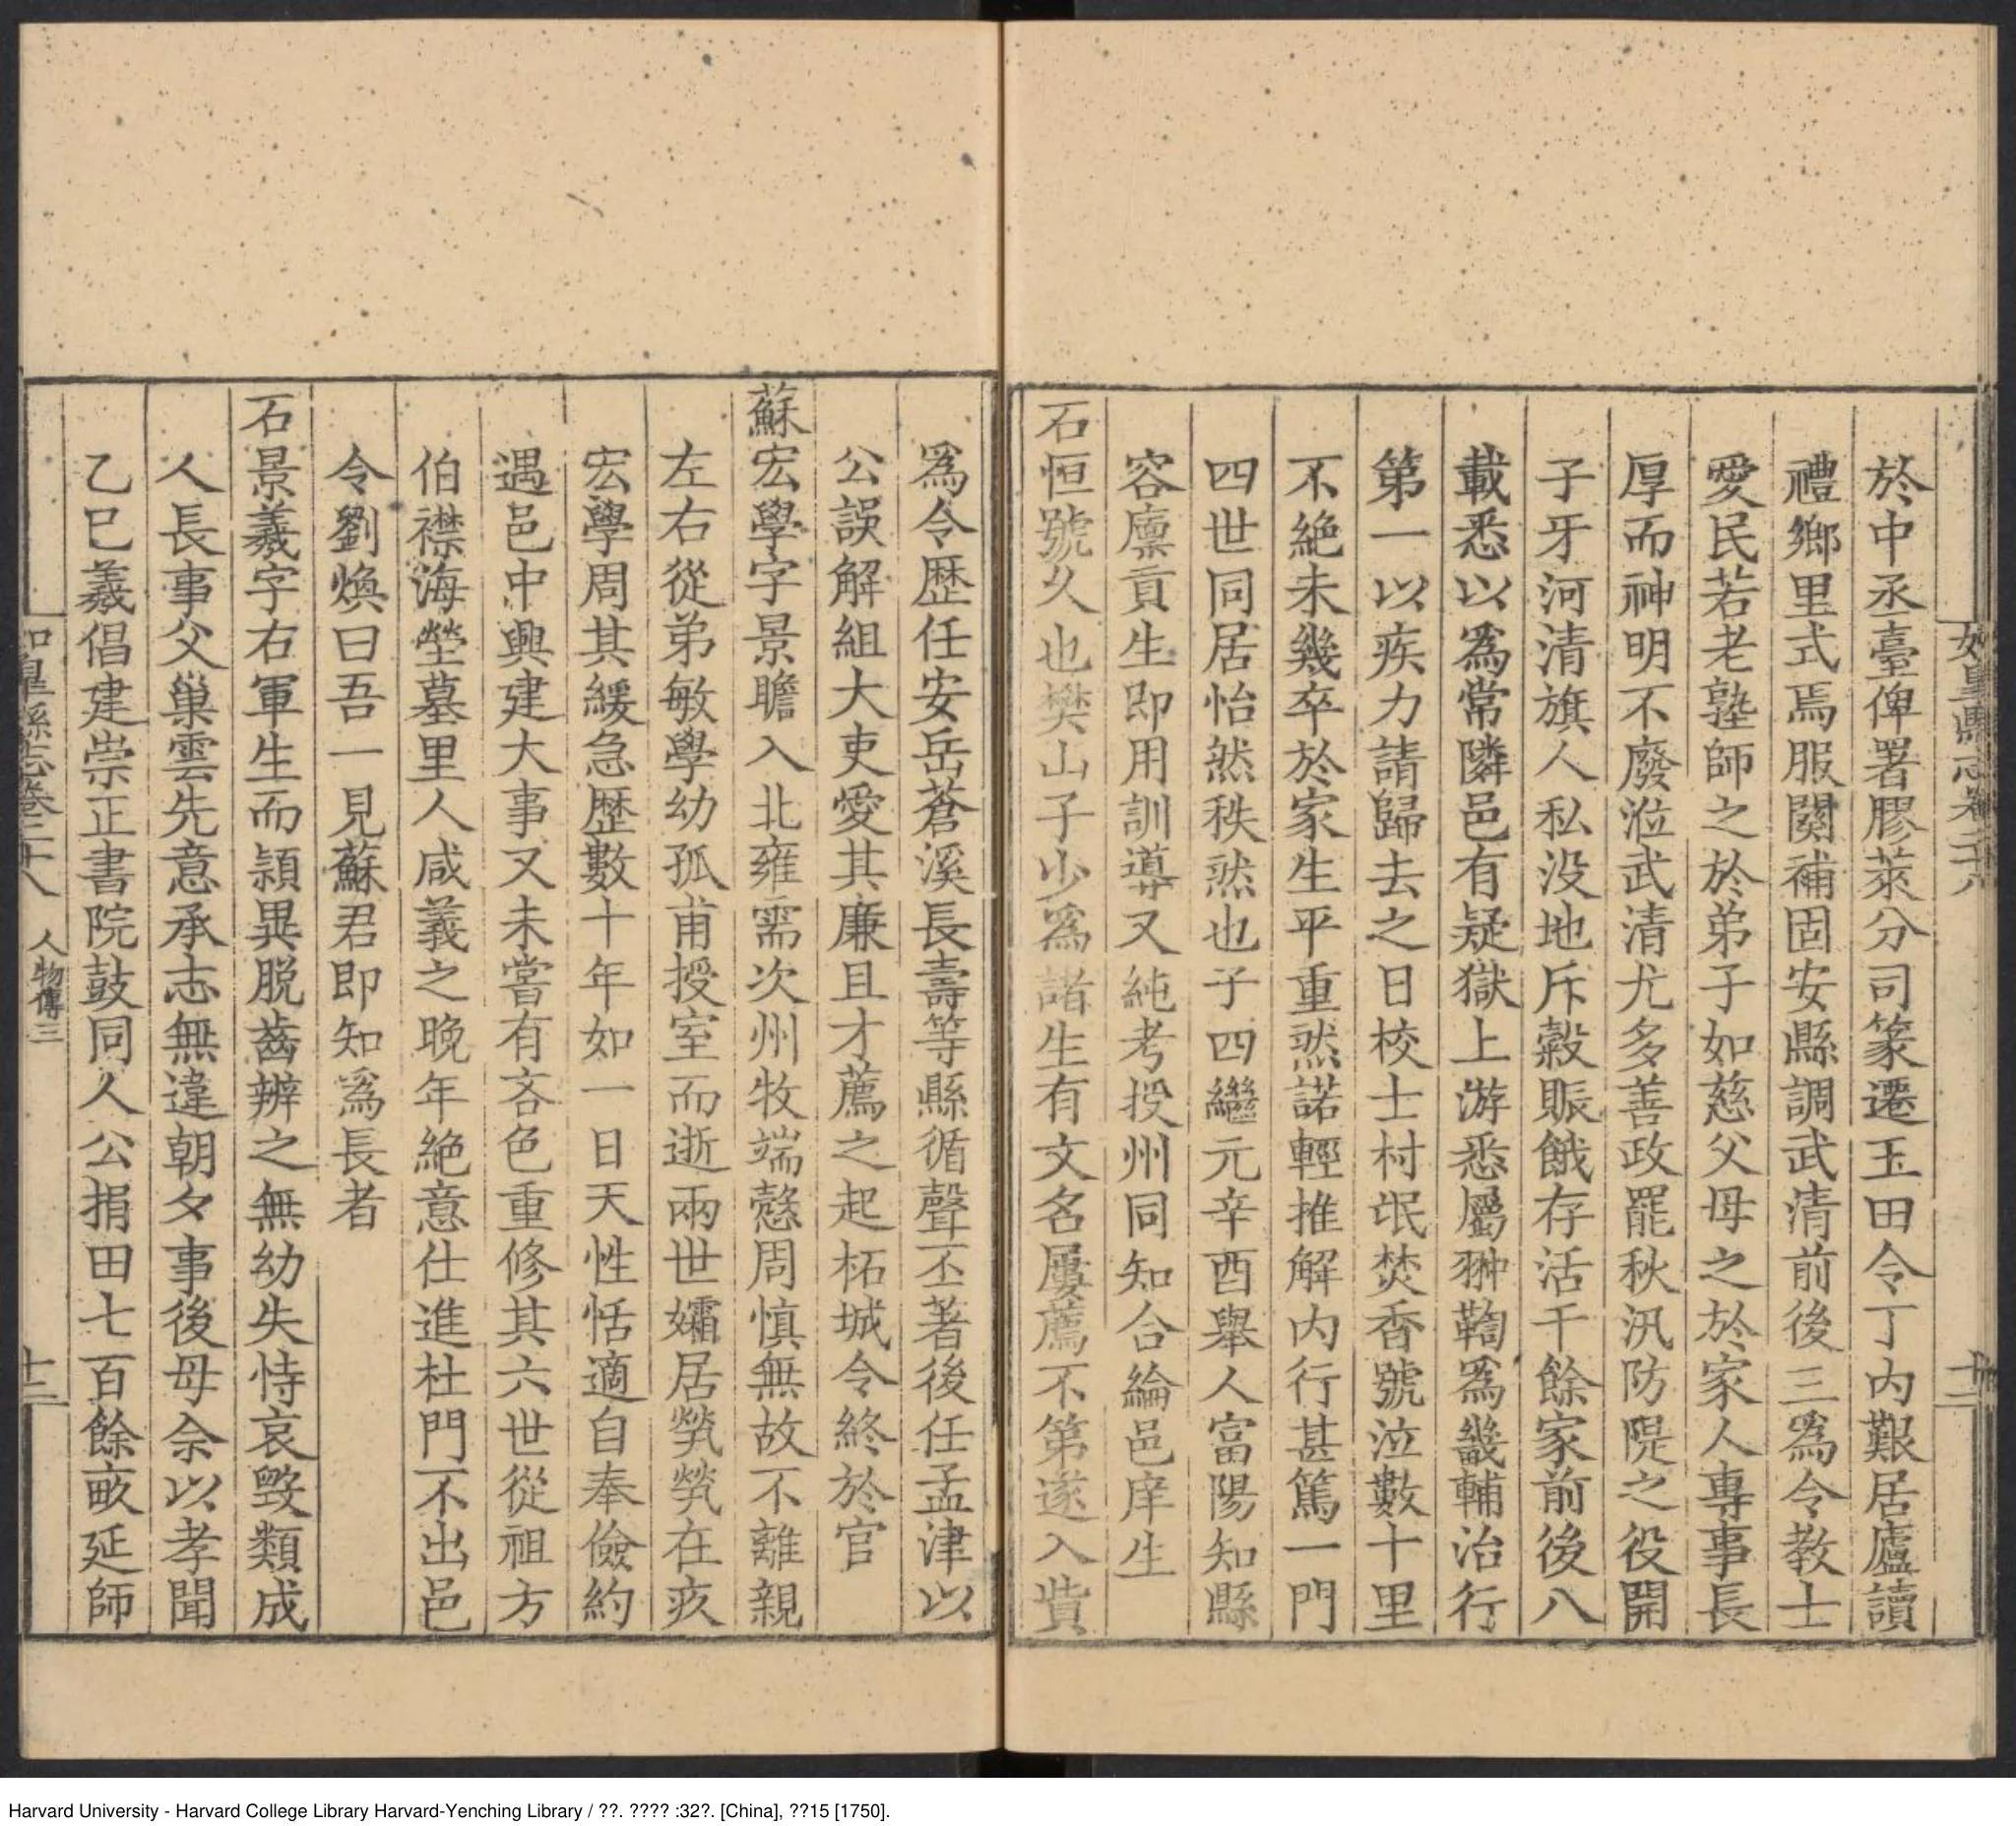 如皋縣志卷二十八
十二
於中丞臺俾署膠萊分司篆遷玉田令丁內艱居廬讀
禮鄉里式焉服闋補固安縣調武清前後三爲令教士
愛民若老塾師之於弟子如慈父母之於家人專事長
厚而神明不廢涖武清尤多善政罷秋汛防隄之役開
子牙河清旗人私没地斥穀賑餓存活千餘家前後八
載悉以爲常隣邑有疑獄上游悉屬翀鞫爲畿輔治行
第一以疾力請歸去之日校士村氓焚香號泣數十里
不絶未幾卒於家生平重然諾輕推解内行甚篤一門
四世同居怡然秩然也子四繼元辛酉舉人富陽知縣
容廩貢生即用訓導又純考授州同知合綸邑庠生
石恒號久也樊山子少爲諸生有文名屢薦不第遂入貲
爲令歴任安岳蒼溪長壽等縣循聲丕著後任孟津以
公誤解組大吏愛其廉且才薦之起柘城令終於官
蘇宏學字景瞻入北雍需次州牧端慤周慎無故不離親
左右從弟敏學幼孤甫授室而逝兩世孀居煢煢在疚
宏學周其緩急歴數十年如一日天性恬適自奉儉約
遇邑中興建大事又未嘗有吝色重修其六世從祖方
伯襟海塋墓里人咸義之晚年絶意仕進杜門不出邑
令劉煥曰吾一見蘇君即知爲長者
石景羲字右軍生而頴異脱齒辨之無幼失恃哀毁類成
人長事父巢雲先意承志無違朝夕事後母佘以孝聞
乙巳羲倡建崇正書院鼓同人公捐田七百餘畝延師
如皋縣志卷二十八 人物傳三
十二